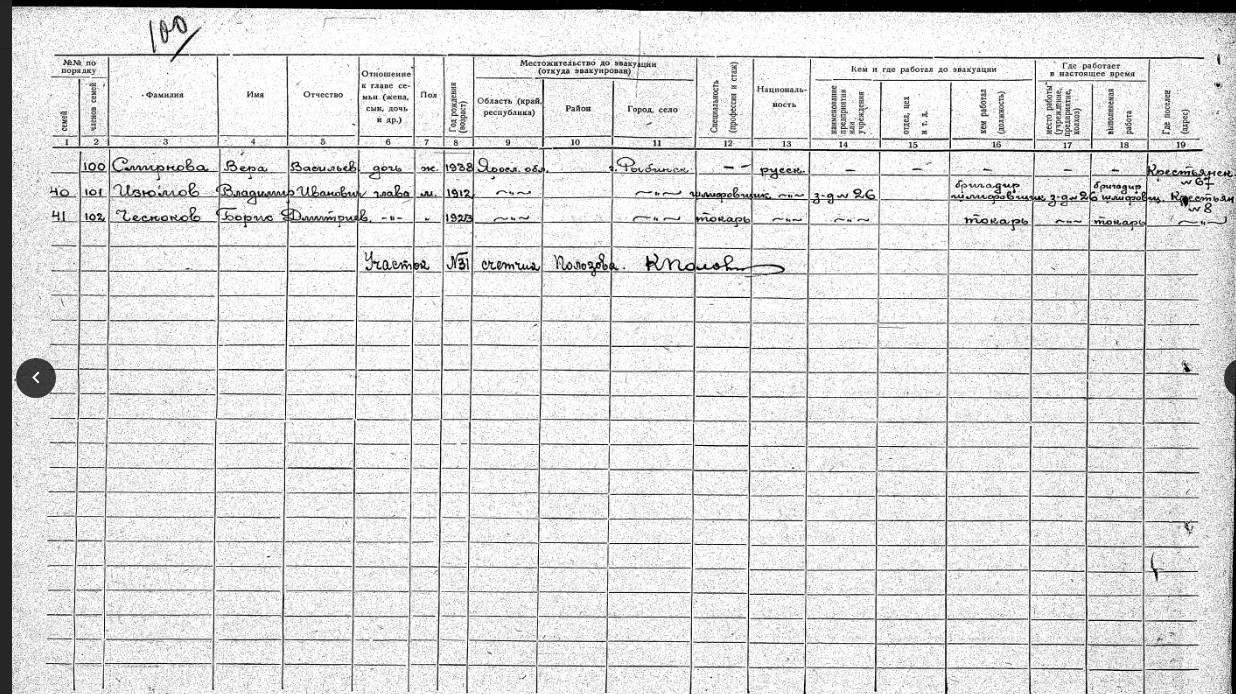 100
№№ по порядку
семей
членов семей
Фамилия
Имя
Отчество
Отношение к главе семьи (жена, сын, дочь и др.)
Пол
Год рождения (возраст)
Местожительство до эвакуации (откуда эвакуирован)
Область (край, республика)
Район
Город, село
Специальность (профессия и стаж)
Национальность
Кем и где работал до эвакуации
наименование предприятия или учреждения
отдел, цех и т. д.
кем работал (должность)
Где работает в настоящее время
место работы (учреждение, предприятие, колхоз)
выполняемая работа
Где поселен (адрес)
1 2 3 4 5 6 7 8 9 10 11 12 13 14 15 16 17 18 19
100 Смирнова Вера Васильев. дочь ж. 1938 Яросл. обл. г. Рыбинск – – русск. – – – – – Крестьянск. № 67
40 101 Изюмов Владимир Иванович глава м. 1912 ~"~ ~"~ шлифовщик ~"~ з-д № 26 бригадир шлифовщик з-д № 26 бригадир шлифовщ. Крестьян № 8
41 102 Чесноков Борис Дмитриев. -"- " 1923 ~"~ ~"~ токарь ~"~ ~"~ токарь ~"~ токарь ~"~
Участок №31 счетчик Полозова.